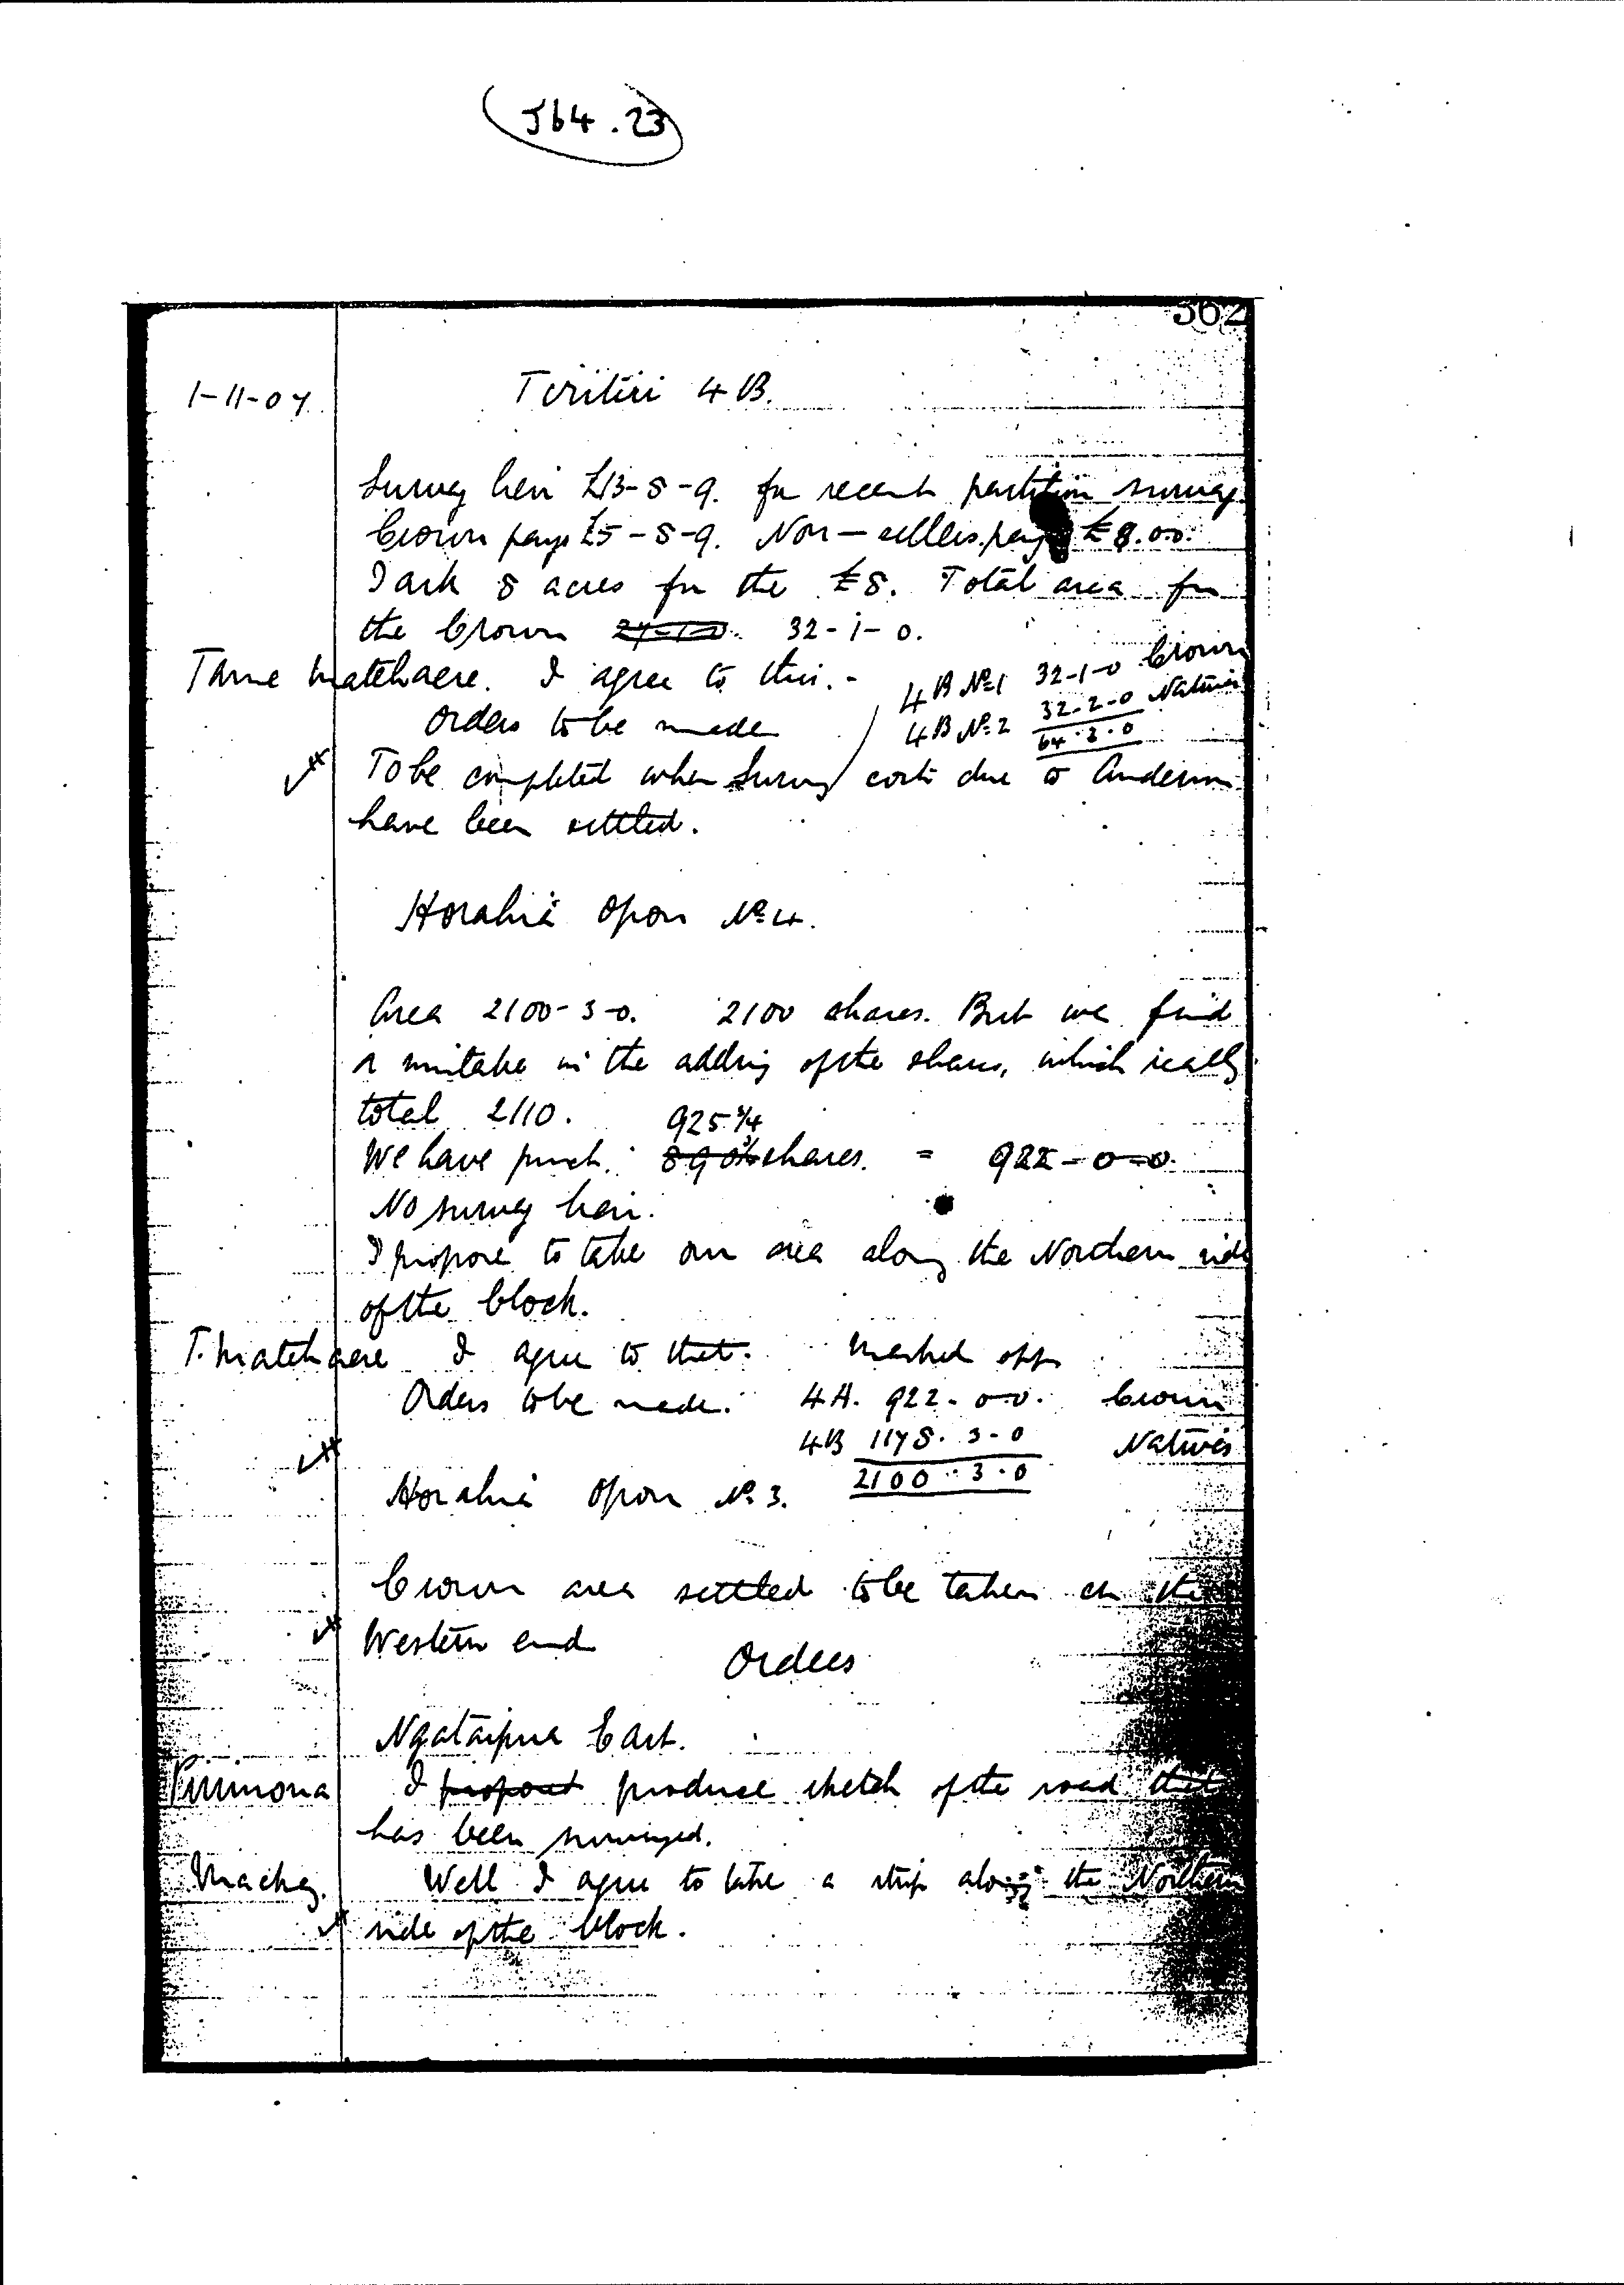 J64.23
362
1-11-07
Tiritiri 4B.
Survey lien £13-8-9. for recent partition survey
Crown pays £5-8-9. Non-sellers pay £8.0.0.
I ask 8 acres for the £8. Total area for
the Crown 32-1-0.
Tame Matehaere. I agree to this.-
4B No1 32-1-0 Crown
Orders to be made
4B No2 32-2-0 Natives
64.3.0
To be completed when Survey costs due to Anderson
have been settled.
Horahia Opou No 4.
Area 2100-3-0. 2100 shares. But we find
a mistake in the adding of the shares, which really
total 2110.
925 3/4
We have purch. shares. = 922-0-0.
No survey lien.
I propose to take our area along the Northern side
of the block.
T. Matehaere I agree to that. Marked off
Orders to be made. 4A. 922-0-0. Crown
4B 1178.3-0 Natives
2100.3.0
Horahia Opou No 3.
Crown area settled to be taken on the
Western end
Orders
Ngataipua East.
Pirimona I propose produce sketch of the road that
has been surveyed.
Mackay. Well I agree to take a strip along the Northern
side of the block.